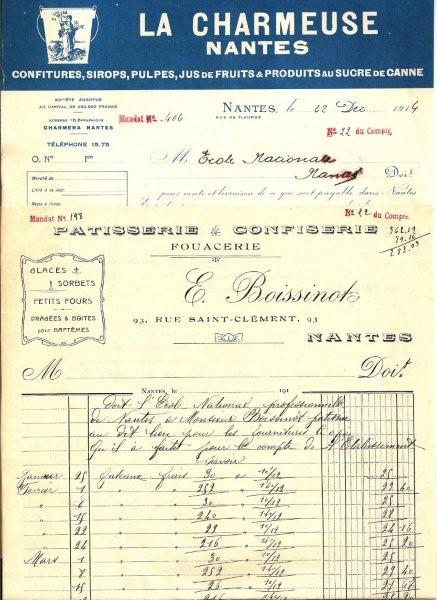 LA CHARMEUSE
NANTES
CONFITURES, SIROPS, PULPES, JUS DE FRUITS & PRODUITS AU SUCRE DE CANNE
SOCIÉTÉ ANONYME
AU CAPITAL DE 250.000 FRANCS
ADRESSE TÉLÉGRAPHIQUE
CHARMERA NANTES
TÉLÉPHONE 15.75
Mandat No 406
NANTES, le 22 Déc 1914
RUE DE FLEURUS
No 22 du Compte
O. No Fo
M Ecole Nationale
Nantes Doit
Marché de
Livré à ce jour
Reste à livrer
pour vente et livraison de ce qui suit payable dans Nantes
Mandat No 198
No 22 du Compte
PATISSERIE & CONFISERIE
FOUACERIE
GLACES
& SORBETS
PETITS FOURS
DRAGÉES & BOITES
pour BAPTÊMES
E. Boissinot
93, RUE SAINT-CLÉMENT, 93
NANTES
M Doit
NANTES, le 191
Doit l'École National professionnelle
de Nantes à Monsieur Boissinot
au dit lieu pour les fournitures
qu'il à faite pour le compte de l'Etablissement
Savoir
Janvier 25 Gateaux frais 30 10/12 25
Fevrier 1 " " 252 " 23 40
" 6 " " 30 10/12 25
" 15 " " 240 " 28
" 22 " " 29 " 24 16
" 24 " " 216 " 25 20
Mars 1 " " 30 10/12 25
" 7 " " 252 " 29 40